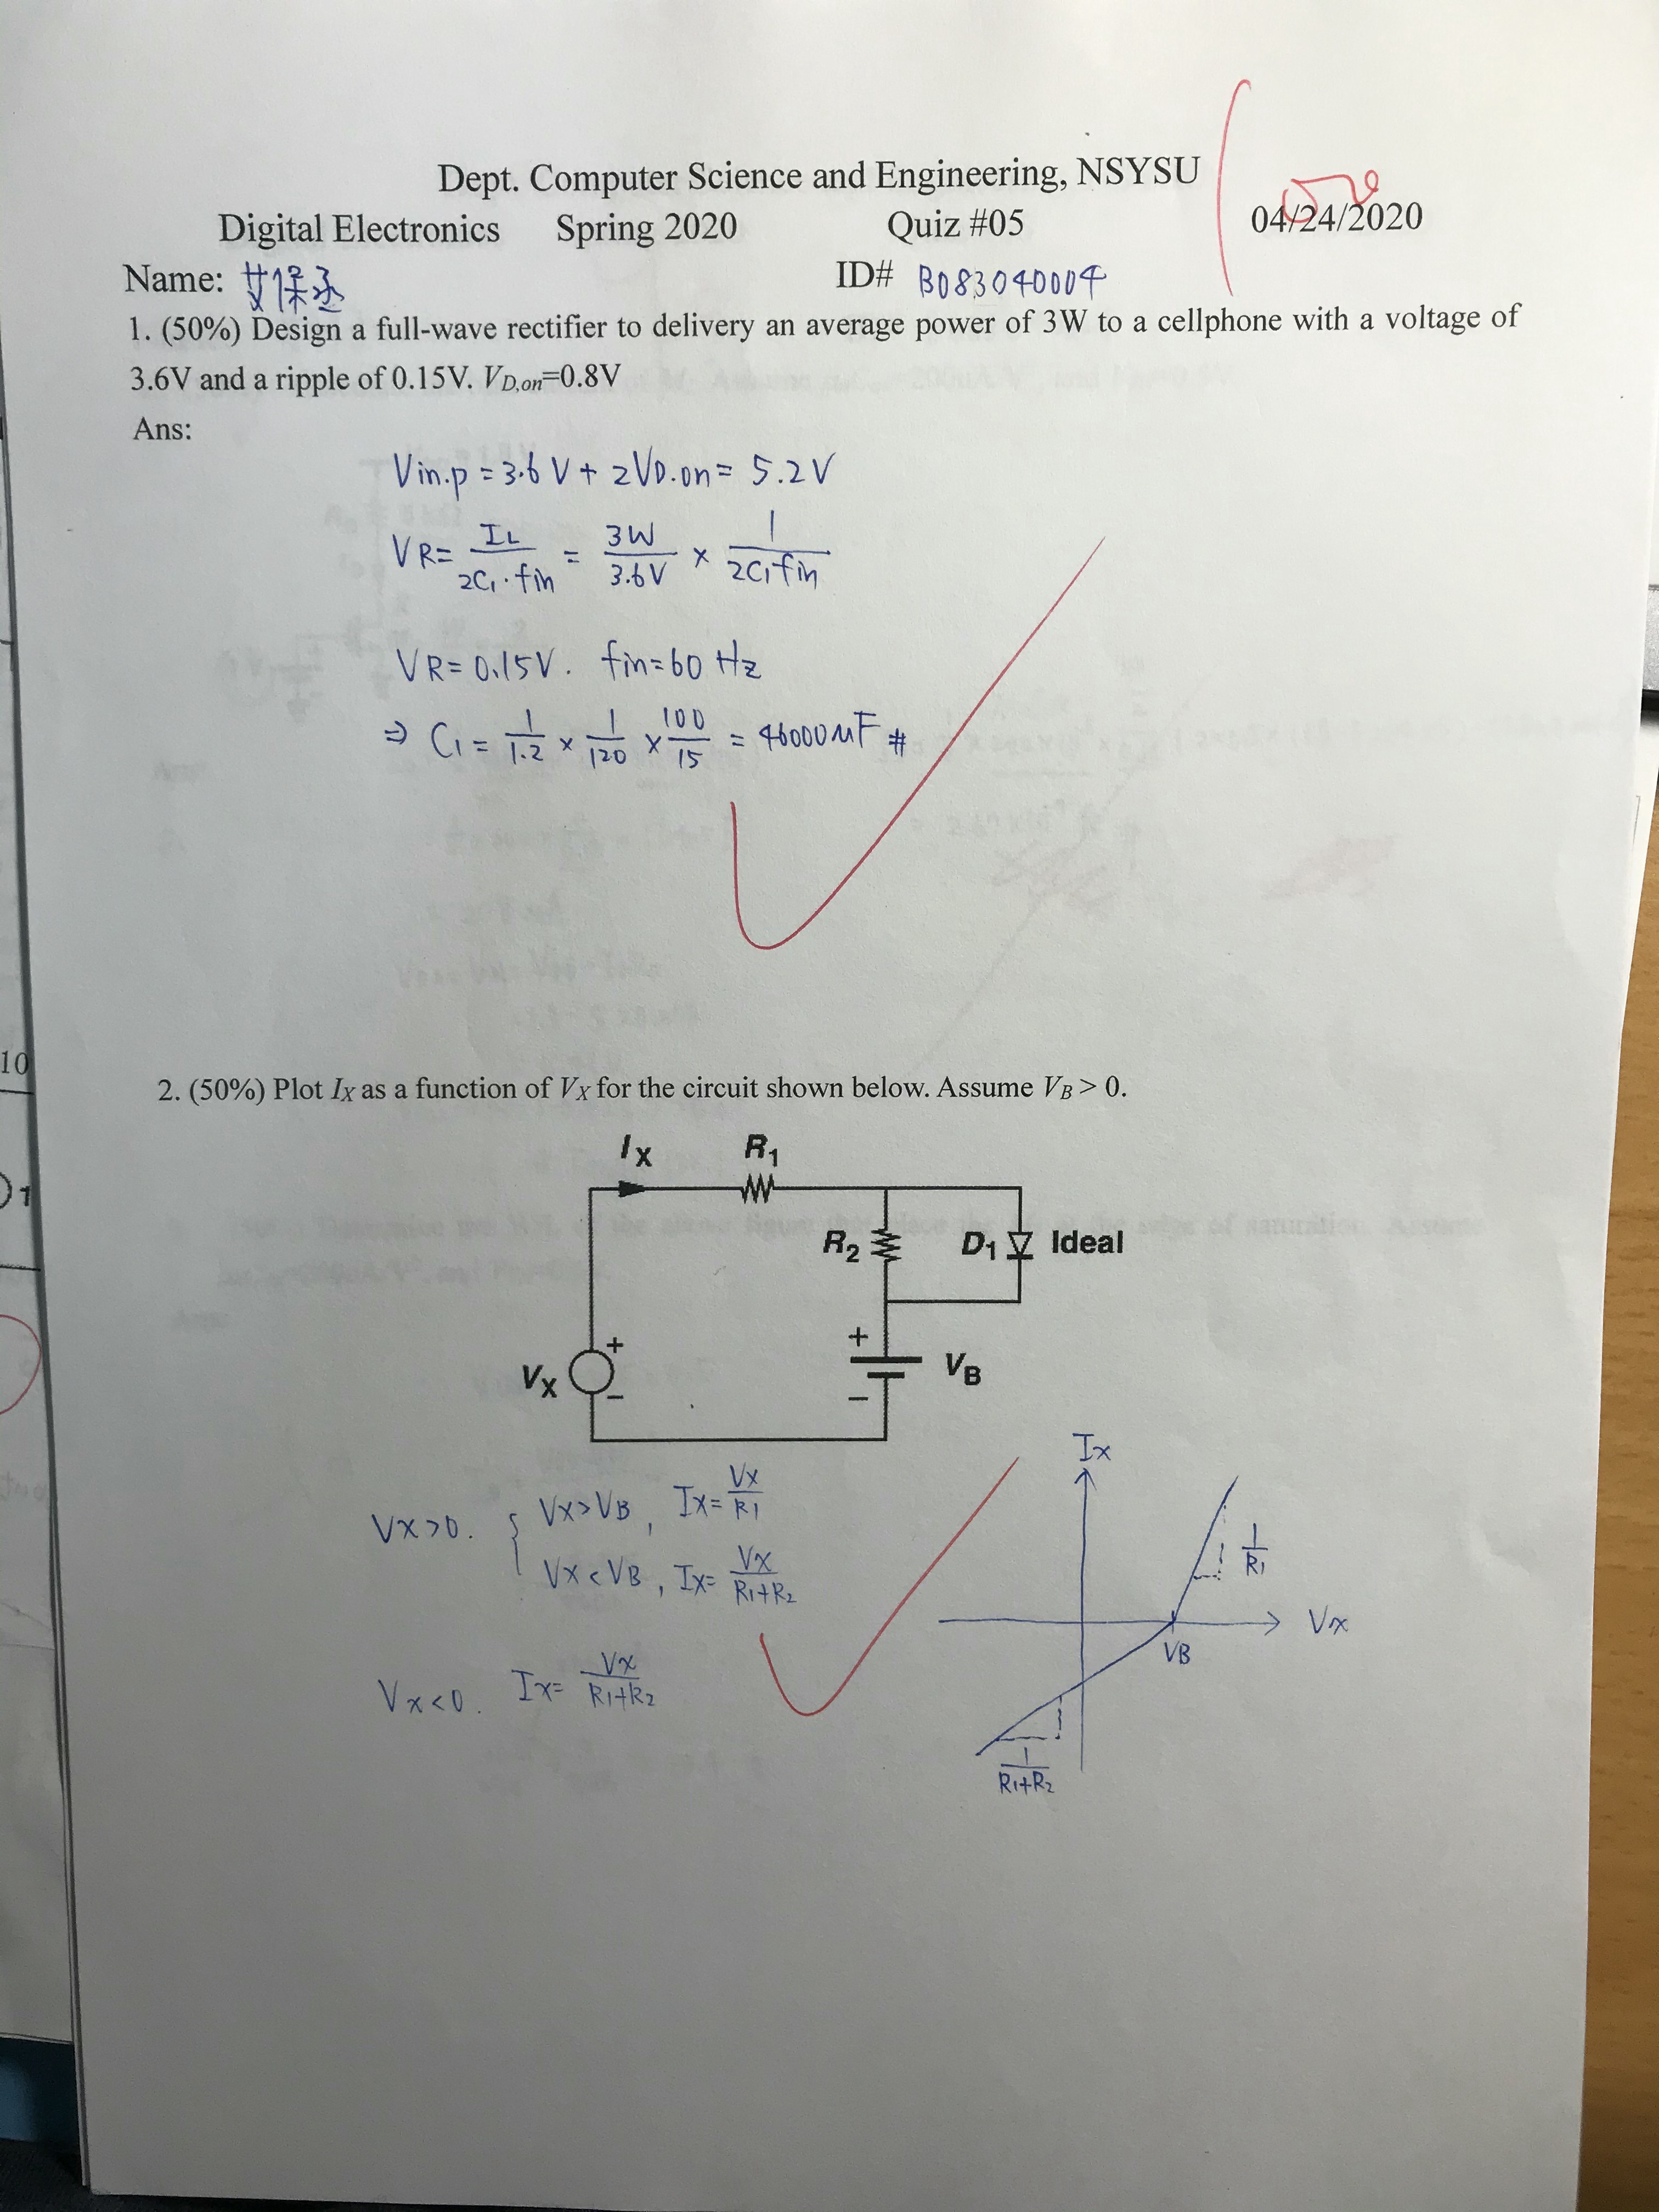 Dept. Computer Science and Engineering, NSYSU
Digital Electronics Spring 2020 Quiz #05 04/24/2020
Name: 艾保丞 ID# B083040004
1. (50%) Design a full-wave rectifier to delivery an average power of 3W to a cellphone with a voltage of
3.6V and a ripple of 0.15V. VD,on=0.8V
Ans:
Vin.p = 3.6 V + 2VD.on = 5.2V
VR = IL / 2C1·fin = 3W / 3.6V × 1 / 2C1fin
VR = 0.15V. fin = 60 Hz
⇒ C1 = 1/1.2 × 1/120 × 100/15 = 46000 uF #
10
2. (50%) Plot IX as a function of VX for the circuit shown below. Assume VB > 0.
IX R1
R2 D1 Ideal
1
+ +
VX VB
− −
Ix
Vx>0. { Vx>VB, Ix= Vx/R1
Vx<VB, Ix= Vx/R1+R2
1/R1
Vx
VB
Vx<0. Ix= Vx/R1+R2
1/R1+R2